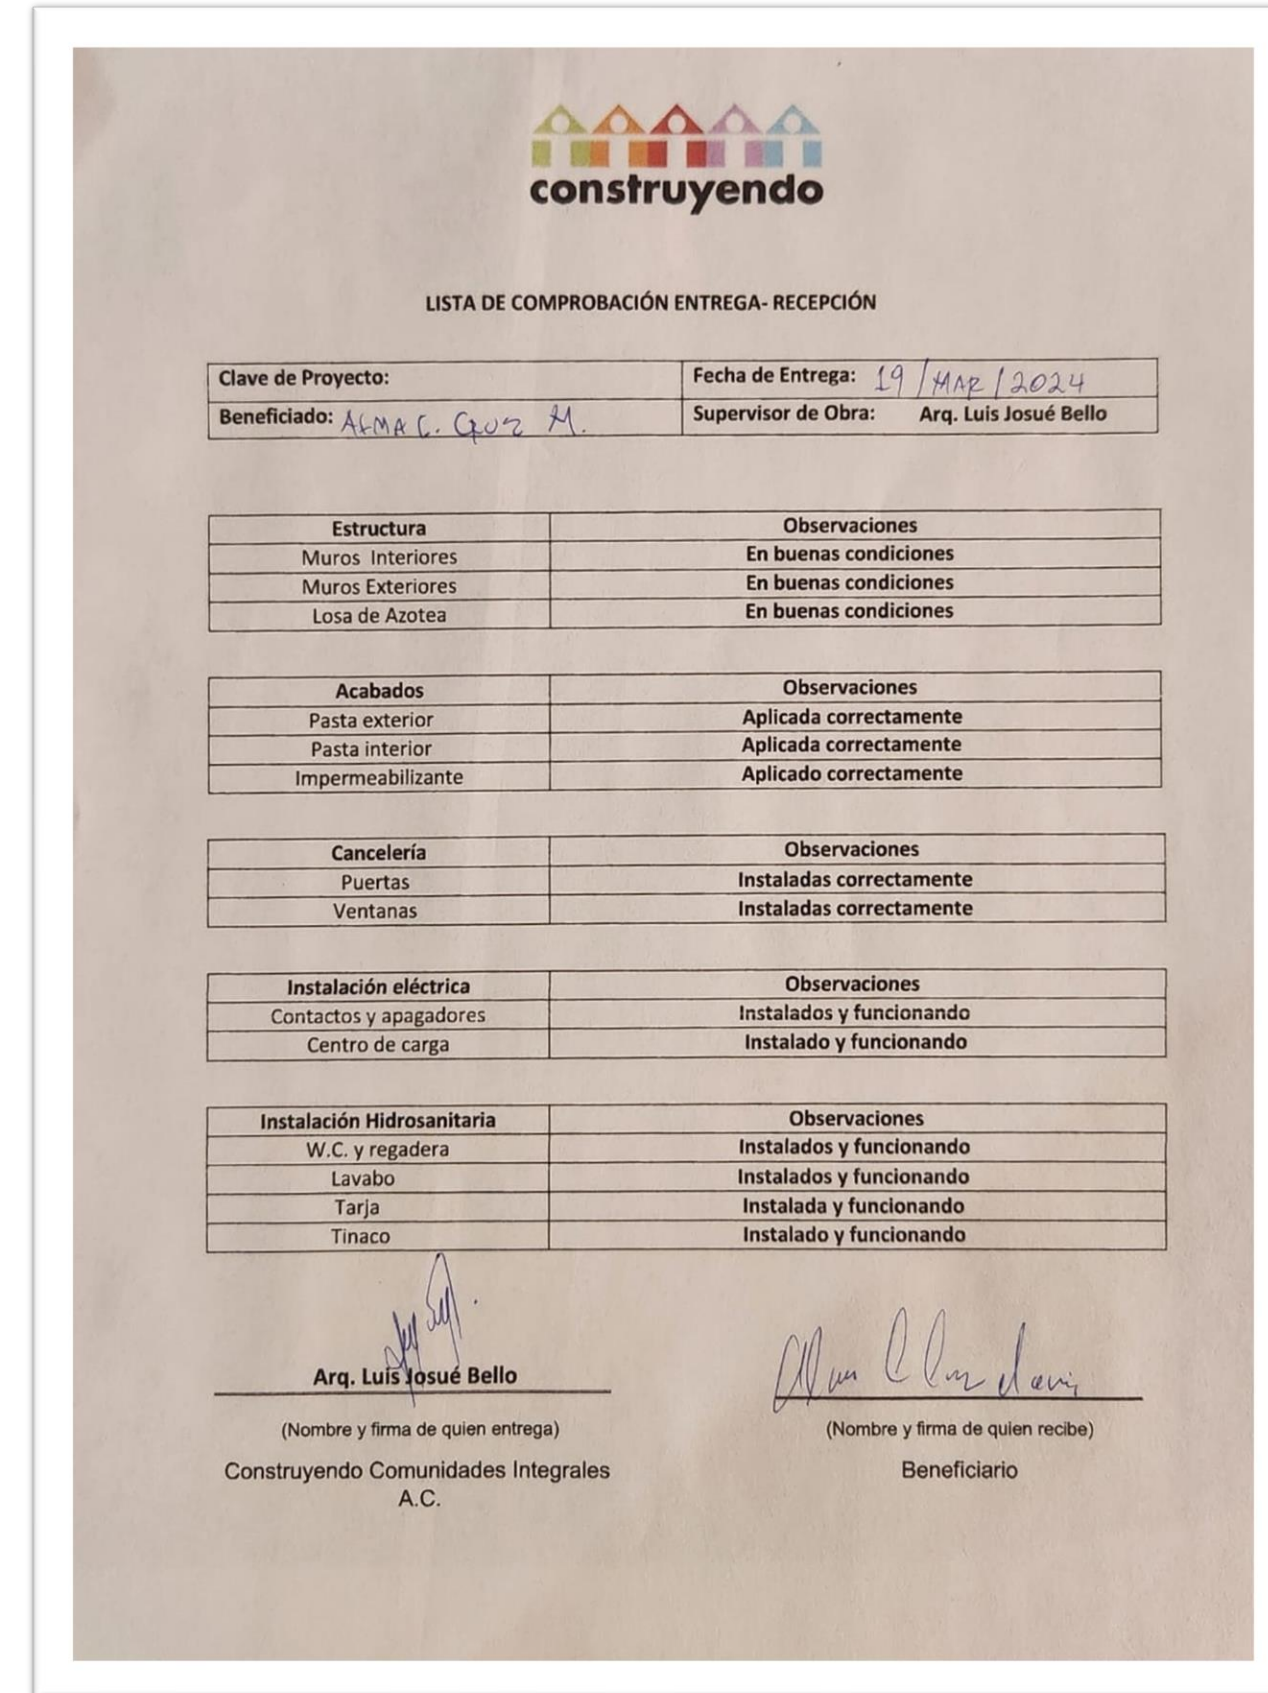 construyendo
LISTA DE COMPROBACIÓN ENTREGA- RECEPCIÓN
Clave de Proyecto: Fecha de Entrega: 19/MAR/2024
Beneficiado: ALMA C. CRUZ M. Supervisor de Obra: Arq. Luis Josué Bello
Estructura Observaciones
Muros Interiores En buenas condiciones
Muros Exteriores En buenas condiciones
Losa de Azotea En buenas condiciones
Acabados Observaciones
Pasta exterior Aplicada correctamente
Pasta interior Aplicada correctamente
Impermeabilizante Aplicado correctamente
Cancelería Observaciones
Puertas Instaladas correctamente
Ventanas Instaladas correctamente
Instalación eléctrica Observaciones
Contactos y apagadores Instalados y funcionando
Centro de carga Instalado y funcionando
Instalación Hidrosanitaria Observaciones
W.C. y regadera Instalados y funcionando
Lavabo Instalados y funcionando
Tarja Instalada y funcionando
Tinaco Instalado y funcionando
Arq. Luis Josué Bello
(Nombre y firma de quien entrega) (Nombre y firma de quien recibe)
Construyendo Comunidades Integrales Beneficiario
A.C.